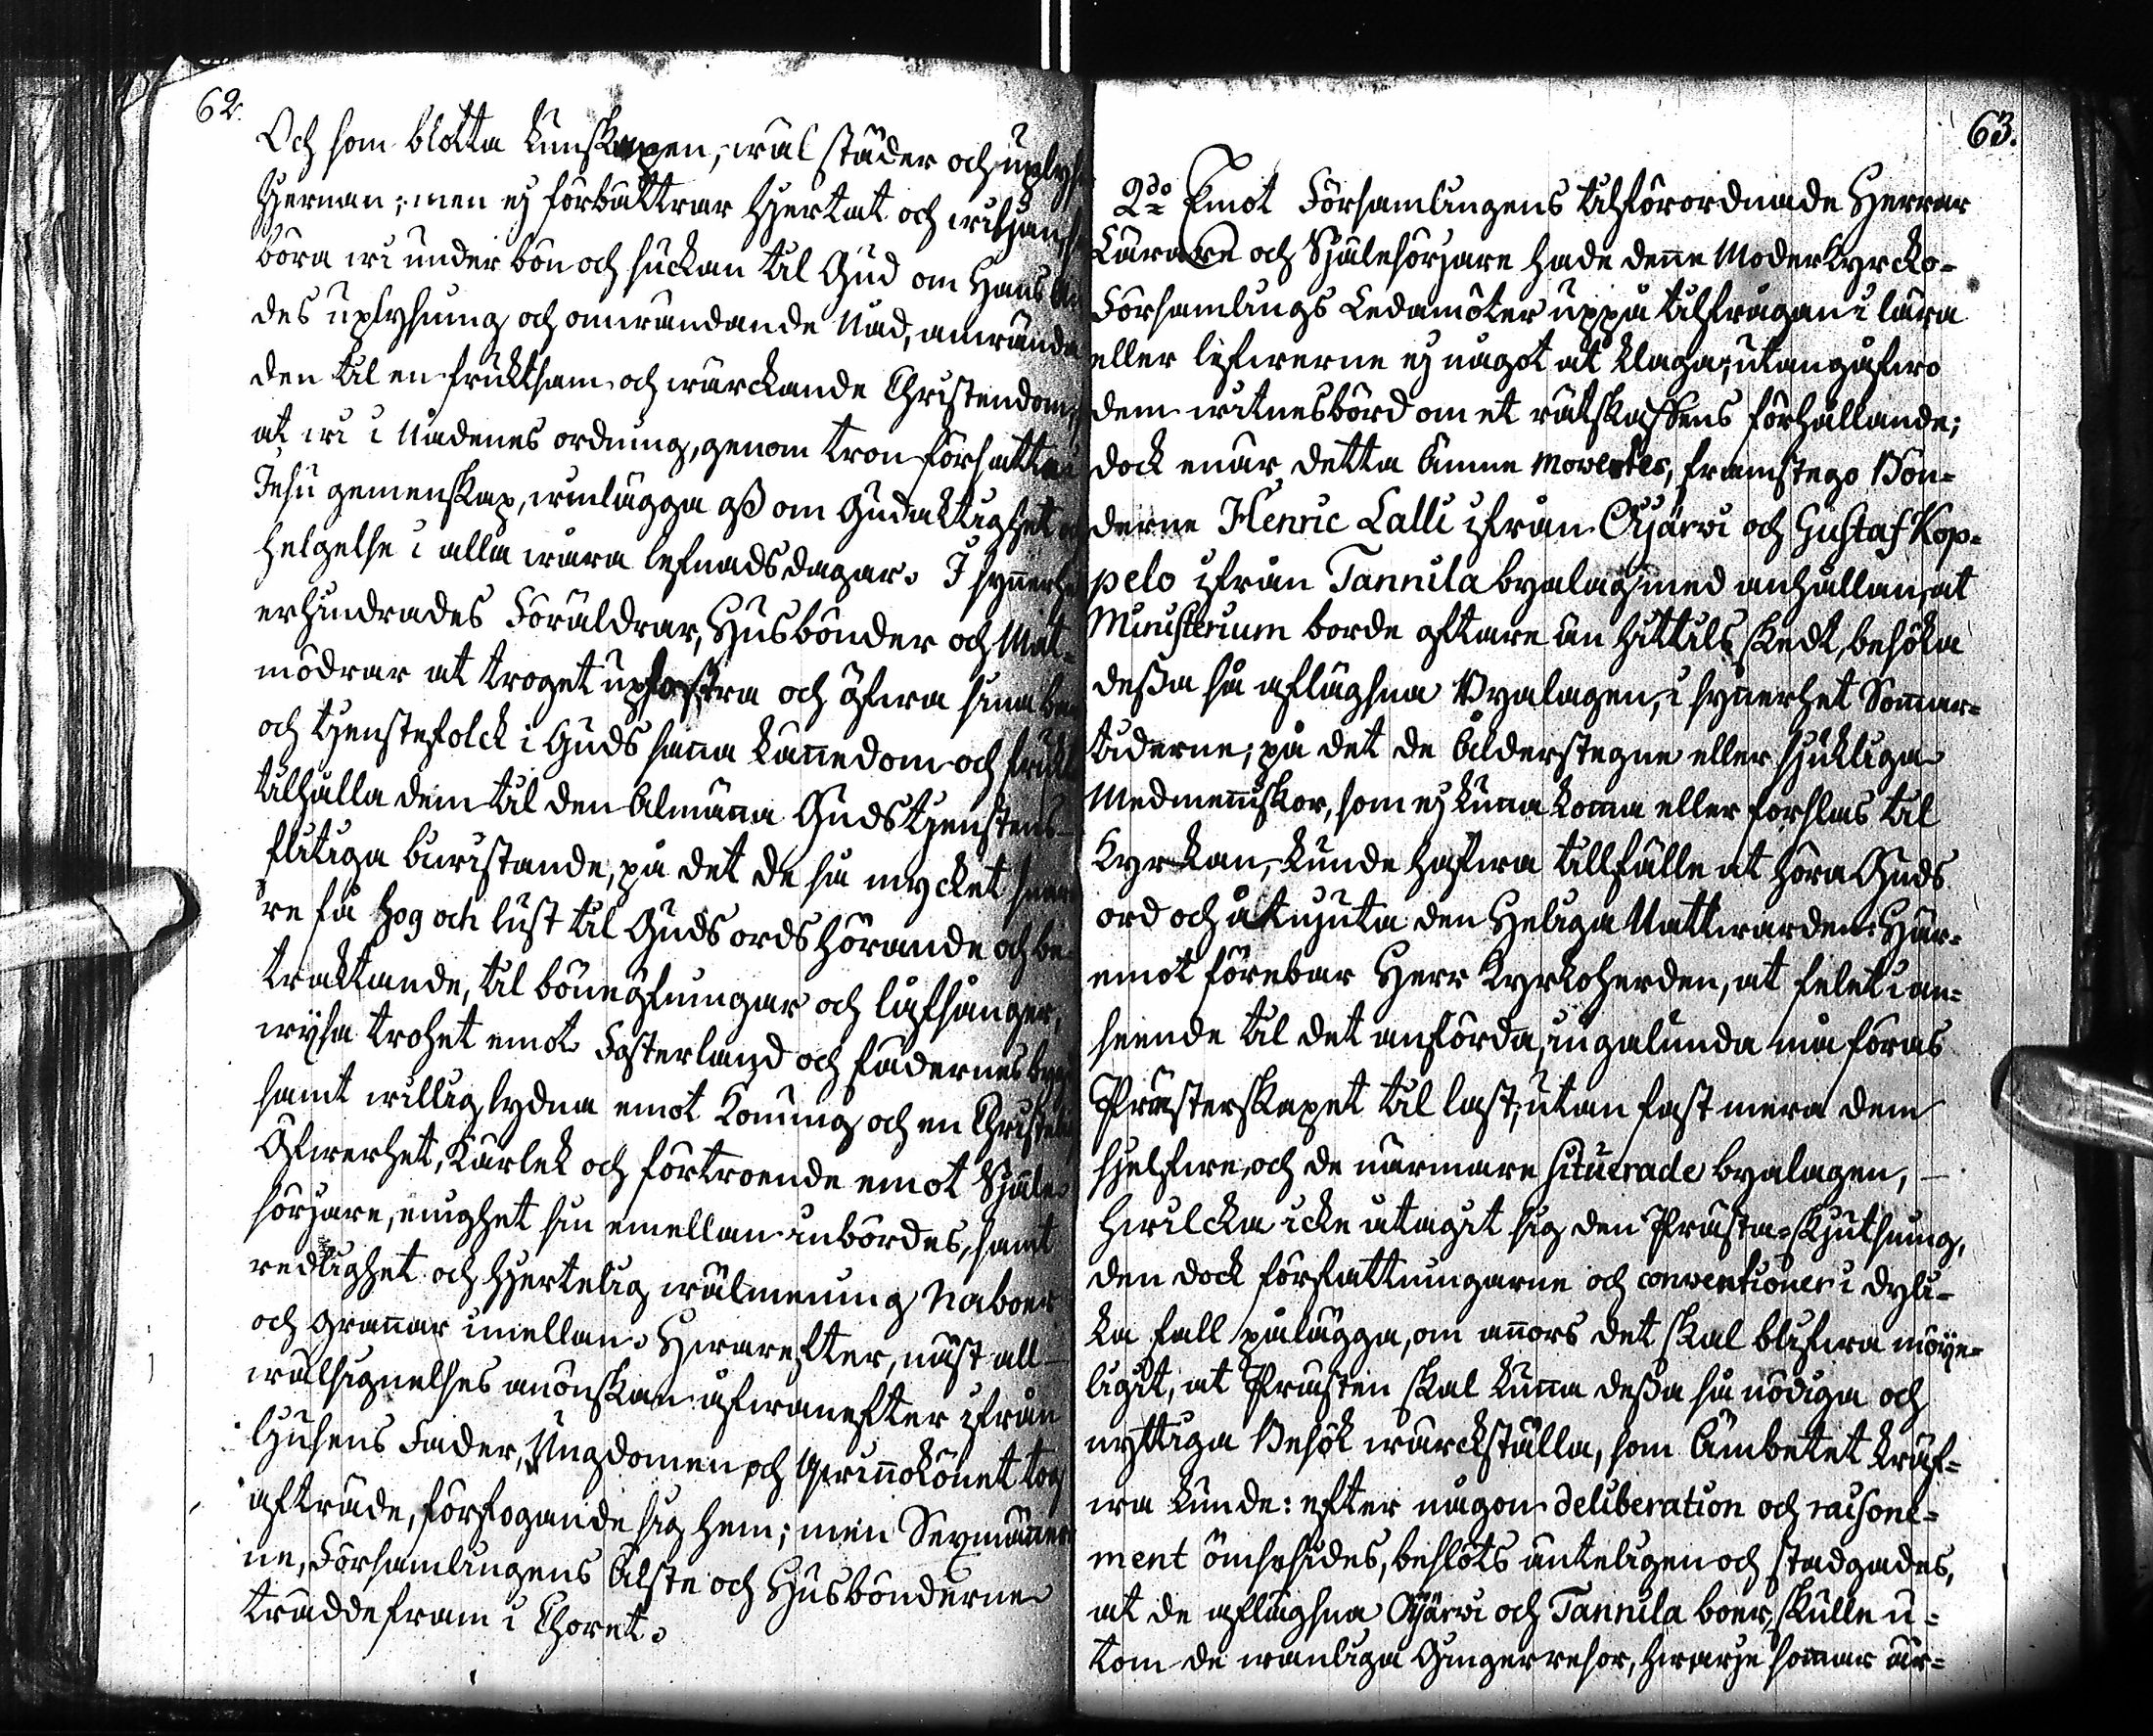 62.
Och som blotta kunskapen, wäl städer och uplyser
Hjernan; men ej förbättrar Hjertat och wiljan, så
böra wi under bön och suckan til Gud om Hans An-
des uplysning och omwändande Nåd, anwända
den til en fruktsam och wärckande Christendom,
at wi i Nådenes ordning, genom tron försatte i
Jesu gemenskap, winlägga oss om Gudaktighet och
helgelse i alla wåra lefnads dagar. I synnerhet
erhindrades Föräldrar, Husbönder och Mat-
mödrar at troget upfostra och öfwa sina barn
och tjenstefolck i Guds sanna kännedom och fruktan
tilhålla dem til den Almänna Gudstjenstens
flitiga biwistande, på det de så mycket snara-
re få hog och lust til Guds ords hörande och be-
traktande, til böneöfningar och låfsånger,
wijsa trohet emot Fosterland och fädernesbygd
samt willig lydna emot Konung och en Christelig
Öfwerhet, Kärlek och förtroende emot Själe-
sörjare, enighet sin emellan inbördes, samt
redlighet och hjertelig wälmening Naboer
och Grannar imellan. Hwarefter, näst all
wälsignelses anönskan åfwanefter ifrån
Ljusens Fader, Ungdomen och Qwinnokönet tog
afträde, förfogande sig hem; men Sexmänner-
ne, Församlingens Älste och Husbönderne
trädde fram i Choret.
63.
2do Emot Församlingens tilförordnade Herrar
Lärare och Själesörjare hade denne Moderkyrcko-
Församlings Ledamöter uppå tilfrågan i lära
eller lefwerne ej något at klaga, utan gåfwo
dem witnesbörd om et rätskaffens förhållande;
dock enär detta ämne moverdes, framstego Bön-
derne Henric Lalli ifrån Oijärvi och Gustaf Kop-
pelo ifrån Tannila byalag med anhållan, at
Ministerium borde oftare än hittils skedt, besöka
dessa så aflägsna Byalagen, i synnerhet Sommar-
tiderne; på det de Ålderstegne eller sjukliga
Medmenniskor, som ej kunna komma eller forslas til
Kyrkan, kunde hafwa tillfälle at höra Guds
ord och åtnjuta den Heliga Nattwarden. Här-
emot förebar Herr Kyrkoherden, at felet i an-
seende til det anförda, ingalunda må föras
Prästerskapet til last, utan fast mera dem
sjelfwe, och de närmare situerade byalagen,
hwilcka icke åtagit sig den Prästa-skjutsning,
den dock författningarne och conventioner i dyli-
ka fall pålägga, om annors det skal blifwa möje-
ligit, at Prästen skal kunna dessa så nödiga och
nyttiga Besök wärckställa, som Ämbetet kräf-
wa kunde: efter någon deliberation och raisone-
ment ömsesides, beslöts änteligen och stadgades,
at de aflägsna Oijärvi och Tannila boer, skulle u-
tom de wanliga Gingerresor, hwarje sommar är-